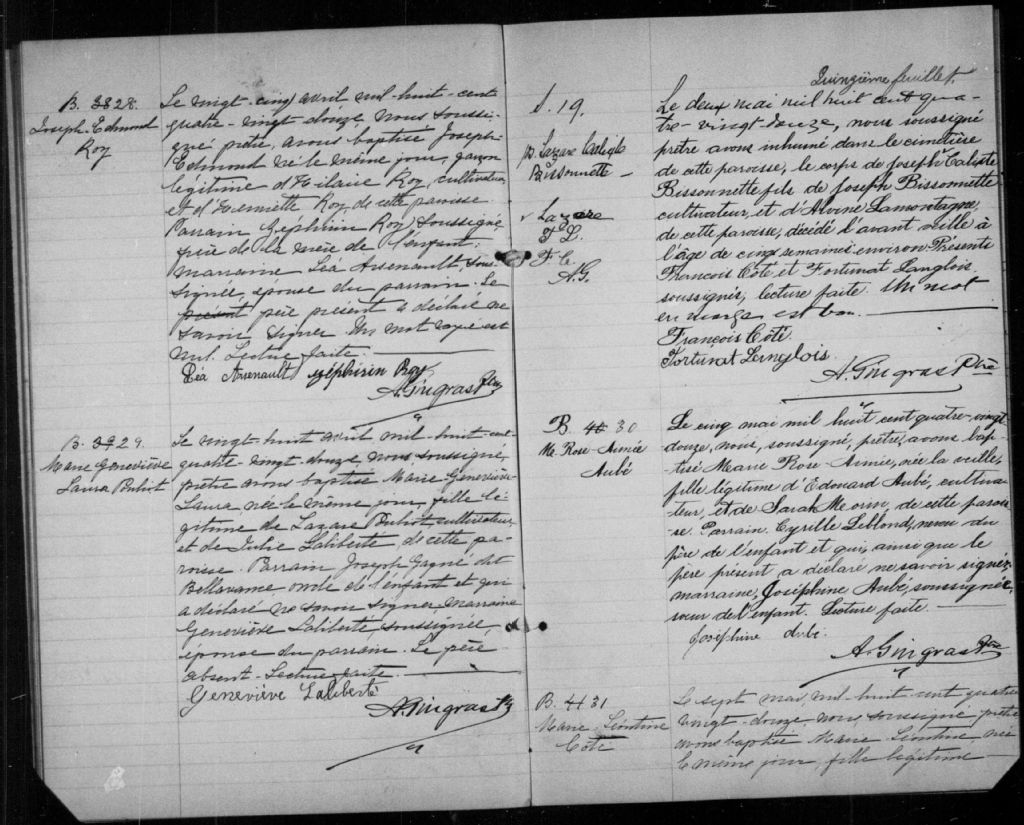 B. 3828.
Joseph-Edmond
Roy
Le vingt-cinq avril mil-huit-cent
quatre-vingt-douze nous soussi-
gné prêtre, avons baptisé Joseph-
Edmond né le même jour, garçon
légitime d'Hilaire Roy, cultivateur
et d'Henriette Roy de cette paroisse.
Parrain Zéphirin Roy soussigné,
père de la mère de l'enfant;
marraine Léa Arsenault, sous-
signée, épouse du parrain. Le
présent père présent a déclaré ne
savoir signer. Un mot rayé est
nul. Lecture faite.
Léa Arsenault Zéphirin Roy
A. Gingras Ptre
B. 3929.
Marie Geneviève
Laura
Le vingt-huit avril mil-huit-cent-
quatre-vingt-douze nous, soussigné,
prêtre avons baptisé Marie-Geneviève-
Laura née le même jour, fille lé-
gitime de Lazare cultivateur
et de Julie Laliberté de cette pa-
roisse. Parrain Joseph Gagné dit
Bellavance oncle de l'enfant et qui
a déclaré ne savoir signer, marraine
Geneviève Laliberté, soussignée,
épouse du parrain. Le père
absent. Lecture faite.
Geneviève Laliberté
A. Gingras Ptr
Quinzième feuillet.
S. 19.
Bissonnette
Lazare
F L.
F C
A.G.
Le deux mai mil huit cent qua-
tre-vingt douze, nous soussigné
prêtre avons inhumé dans le cimetière
de cette paroisse, le corps de Joseph Calixte
Bissonnette fils de Joseph Bissonnette
cultivateur, et d'Alvine Lamontagne,
de cette paroisse, décédé l'avant veille à
l'âge de cinq semaines environ. Présents
François Côté et Fortunat Langlois
soussignés; lecture faite. Un mot
en marge est bon.
François Côté.
Fortunat Langlois.
A. Gingras Ptre
B. 40 30
M. Rose-Aimée
Aubé
Le cinq mai mil huit cent quatre-vingt
douze, nous, soussigné, prêtre, avons bap-
tisé Marie Rose-Aimée, née la veille,
fille légitime d'Edouard Aubé, cultiva-
teur, et de Sarah de cette parois-
se. Parrain Cyrille Leblond, neveu du
père de l'enfant et qui, ainsi que le
père présent a déclaré ne savoir signer,
marraine, Joséphine Aubé, soussignée,
sœur de l'enfant. Lecture faite.
Joséphine Aubé.
A. Gingras Ptre
B. 4131
Marie Léontine
Côté
Le sept mai, mil-huit-cent quatre
vingt-douze nous soussigné prêtre
avons baptisé Marie Léontine, née
le même jour, fille légitime